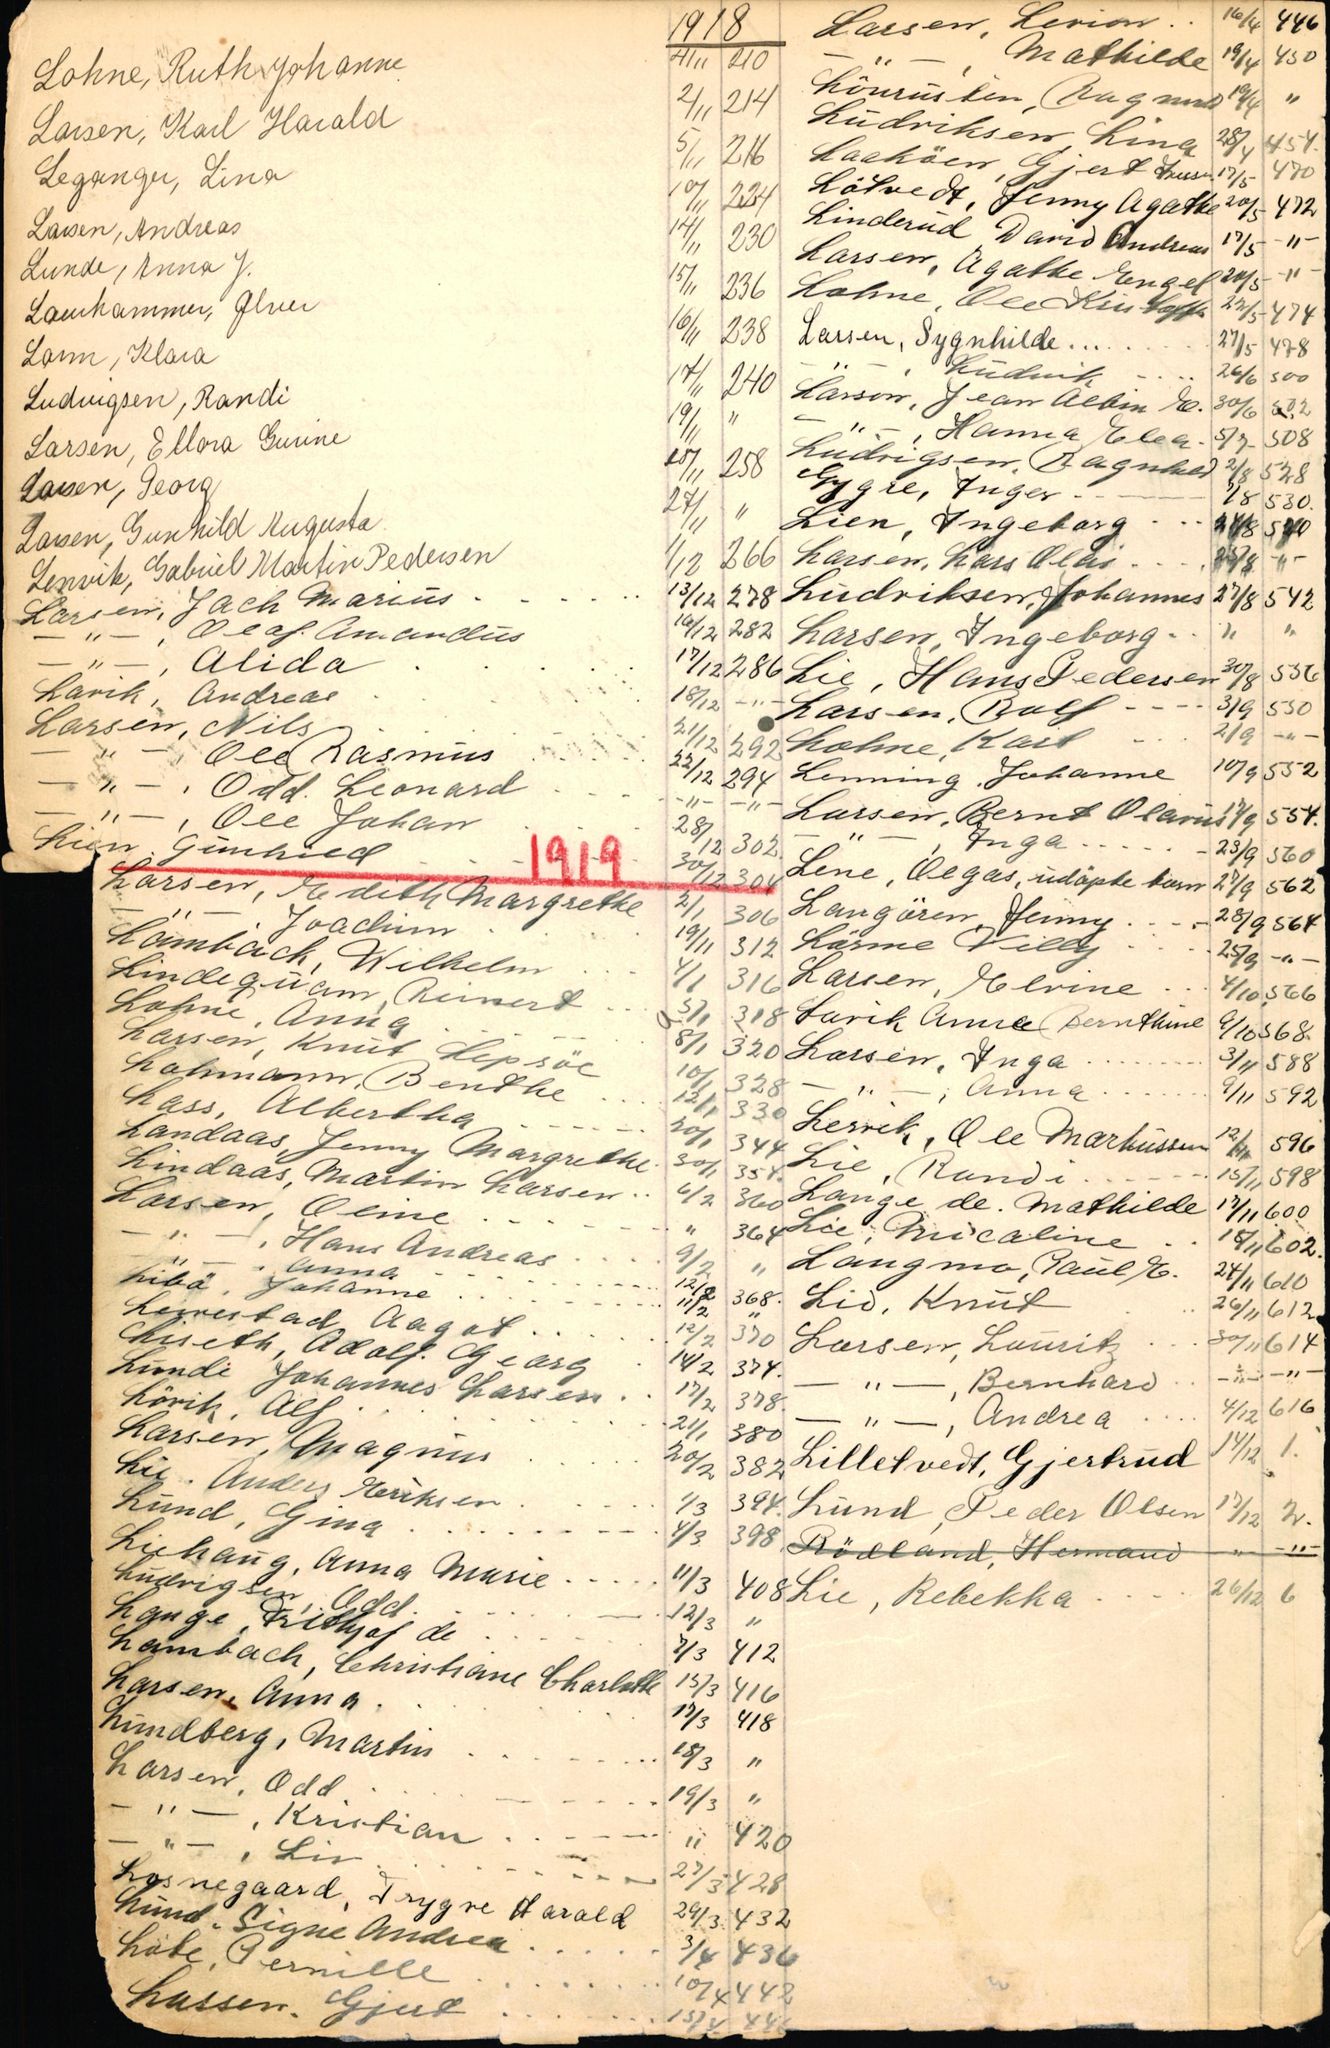 1918
Lohne, Ruth Johanne 4/11 210
Larsen, Karl Harald 2/11 214
Leganger, Lina 5/11 216
Larsen, Andreas 10/11 224
Lunde, Anna J. 14/11 230
Laukhammer, Olver 15/11 236
Larm, Klara 16/11 238
Ludvigsen, Randi 17/11 240
Larsen, Ellora Gurine 19/11 "
Larsen, Georg 25/11 258
Larsen, Gunhild Augusta 27/11 "
Lenvik, Gabriel Martin Pedersen 1/12 266
Larsen, Jach Marius 13/12 278
— " —, Olaf Amandus 16/12 282
— " —, Alida 17/12 286
Larvik, Andreas 18/12 - " -
Larsen, Nils 21/12 292
— " — Ole Rasmus 22/12 294
— " —, Odd Leonard - " - - " -
— " —, Ole Johan 28/12 302
Lien, Gunhild 30/12 304
1919
Larsen, Edith Margrethe 2/1 306
— " — Joachim 19/11 312
Lambach, Wilhelm 4/1 316
Lindequam, Reinert 5/1 318
Lohne, Anna 8/1 320
Larsen, Knut Lepsöe 10/1 328
Lohmann, Benthe 12/1 330
Lass, Albertha 20/1 344
Landaas, Jenny Margrethe 30/1 354.
Lindaas, Martin Larsen 6/2 360
Larsen, Oline " 364
— " —, Hans Andreas 9/2 "
— " — Anna 12/2 368.
Libä, Johanne 11/2 "
Levrestad Aagot 12/2 370
Liseth, Adolf Georg 14/2 374.
Lunde Johannes Larsen 17/2 378.
Lövik, Alf 21/1 380
Larsen, Magnus 20/2 382
Lie, Anders Eriksen 1/3 394.
Lund, Gina 4/3 398
Liehaug, Anna Marie 11/3 408
Ludvigsen, Odd 12/3 "
Lange, Frithjof de 7/3 412
Lambach, Christiane Charlotte 15/3 416
Larsen, Anna 17/3 418
Lundberg, Martin 18/3 "
Larsen, Odd 19/3 "
— " —, Kristian " 420
— " —, Liv 27/3 428
Losnegaard, Trygve Harald 29/3 432
Lund, Signe Andrea 3/4 436
Lote, Pernille 10/4 442
Lassen, Gjert 15/4
Larsen, Levion 16/4 446
— " —, Mathilde 19/4 450
19/4 "
Ludriksen, Lina 28/4 454.
Gjert 17/5 470
Lötvedt, Jenny Agathe 20/5 472
Linderud David Andreas 17/5 - " -
Larsen, Agathe Engel 20/5 - " -
Lohne, Ole 22/5 474
Larsen, Sygnhilde 27/5 478
— " —, Ludvik 26/6 500
Larson, Jean Albin E. 30/6 502
— " —, Hanna Elea 5/7 508
Ludvigsen, Ragnhild 2/8 528
Lygre, Inger 7/8 530.
Lien, Ingeborg 24/8 540
Larsen, Lars Olai 25/8 - " -
Ludriksen, Johannes 27/8 542
Larsen, Ingeborg " "
Lie, Hans Pedersen 30/8 536
Larsen, Rolf 3/9 550
Lohne, Karl 2/9 - " -
Lenning, Johanne 10/9 552
Larsen, Bernt Olavus 17/9 554.
— " —, Inga 23/9 560
Lene, Olgas, udöpte barn 27/9 562
Langören, Jenny 28/9 564
Larme Villy 25/9 - " -
Larsen, Elvine 4/10 566
Larvik Anna Bernthine 9/10 568.
Larsen, Inga 3/11 588
— " —, Anna 9/11 592
Lervik, Ole Markussen 12/11 596
Lie, Randi 15/11 598
Lange de. Mathilde 17/11 600
Lie, Micaline 18/11 602.
Langmo, Paul E. 24/11 610
Lid, Knut 26/11 612
Larsen, Lauritz 30/11 614
— " —, Bernhard - " - - " -
— " —, Andrea 4/12 616
Lilletvedt, Gjertrud 14/12 1.
Lund, Peder Olsen 17/12 2.
Rödland, Hermand " - " -
Lie, Rebekka 26/12 6